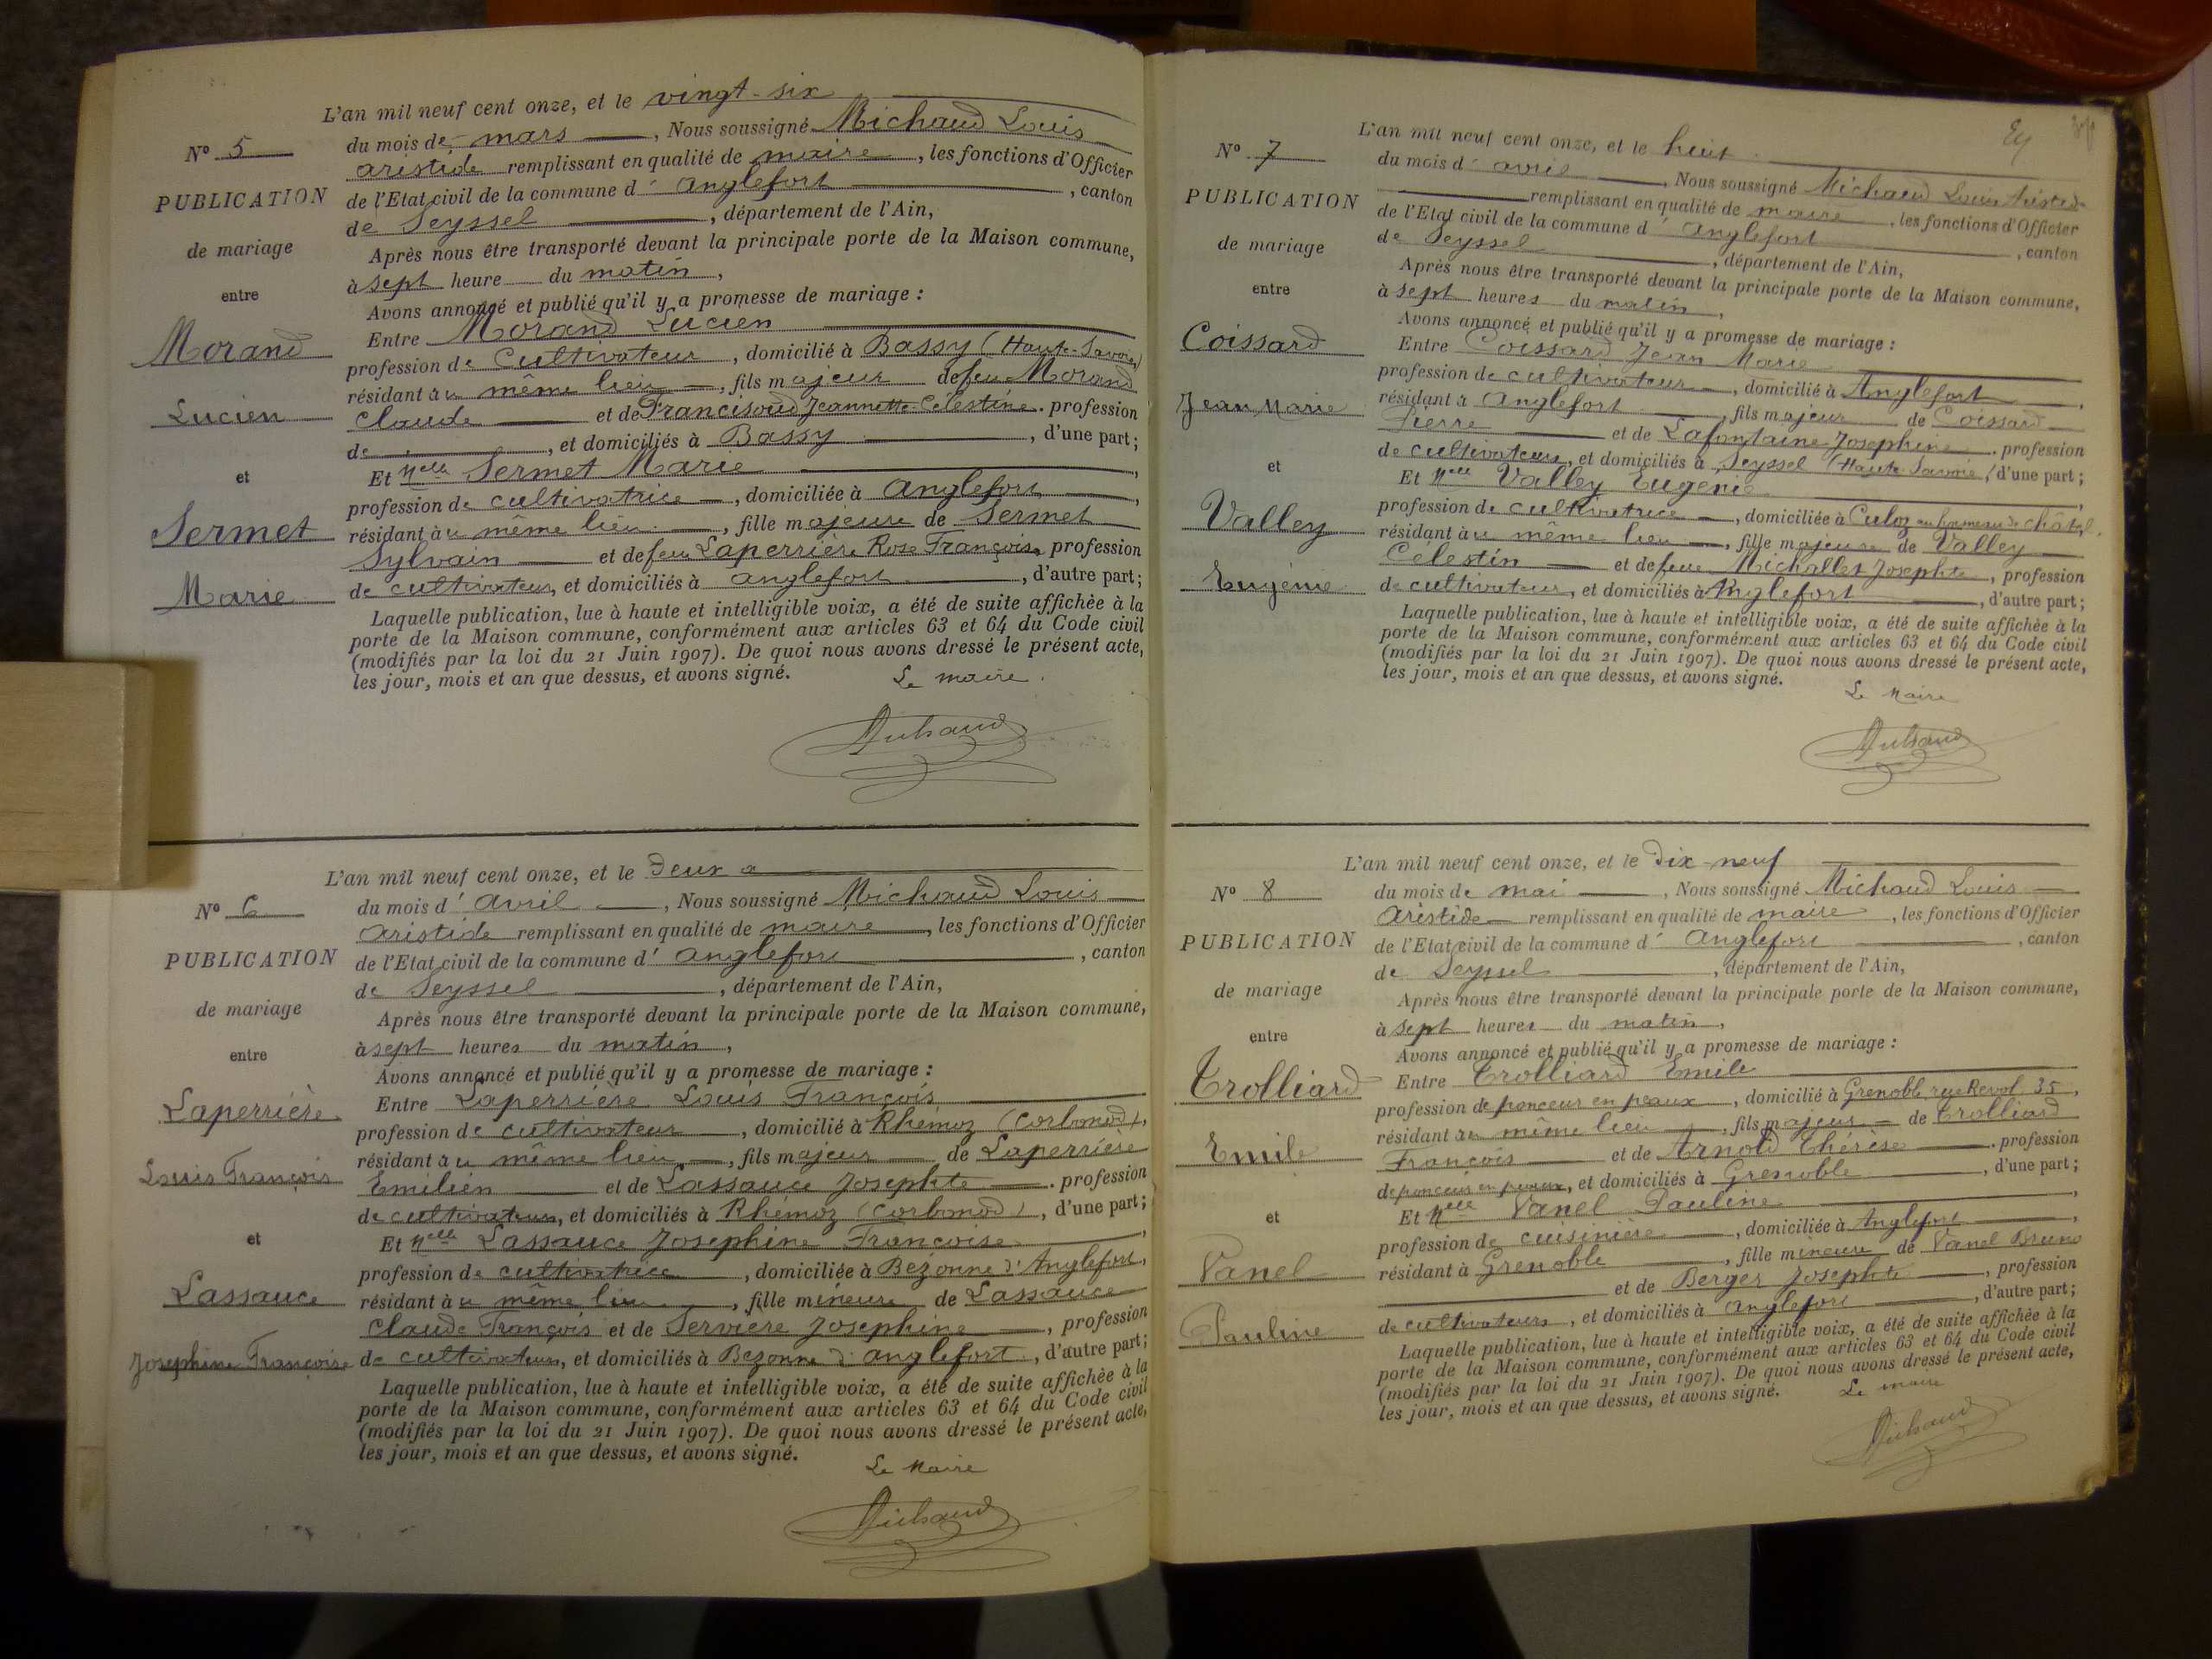 L'an mil neuf cent onze, et le vingt-six
Nº 5
du mois de mars, Nous soussigné Michaud Louis
aristide remplissant en qualité de maire, les fonctions d'Officier
PUBLICATION
de l'Etat civil de la commune d' anglefort, canton
de Seyssel, département de l'Ain,
de mariage
Après nous être transporté devant la principale porte de la Maison commune,
à sept heure du matin,
entre
Avons annoncé et publié qu'il y a promesse de mariage :
Morand
Entre Morand Lucien
profession de cultivateur, domicilié à Bassy (Haute-Savoie)
résidant au même lieu, fils majeur de feu Morand
Lucien
Claude et de Francisoud Jeannette Célestine. profession
de, et domiciliés à Bassy, d'une part;
et
Et Nelle Sermet Marie
profession de cultivatrice, domiciliée à anglefort,
Sermet
résidant au même lieu, fille majeure de Sermet
Sylvain et de feu Laperrière Rose Françoise, profession
Marie
de cultivateurs, et domiciliés à anglefort, d'autre part;
Laquelle publication, lue à haute et intelligible voix, a été de suite affichée à la
porte de la Maison commune, conformément aux articles 63 et 64 du Code civil
(modifiés par la loi du 21 Juin 1907). De quoi nous avons dressé le présent acte,
les jour, mois et an que dessus, et avons signé.
Le maire.
Michaud
L'an mil neuf cent onze, et le deux
Nº 6
du mois d' avril, Nous soussigné Michaud Louis
aristide remplissant en qualité de maire, les fonctions d'Officier
PUBLICATION
de l'Etat civil de la commune d' anglefort, canton
de Seyssel, département de l'Ain,
de mariage
Après nous être transporté devant la principale porte de la Maison commune,
à sept heures du matin,
entre
Avons annoncé et publié qu'il y a promesse de mariage :
Laperrière
Entre Laperrière Louis François
profession de cultivateur, domicilié à Rhémoz (Corbonod),
résidant au même lieu, fils majeur de Laperrière
Louis François
Emilien et de Lassauce Josephte. profession
de cultivateurs, et domiciliés à Rhémoz (Corbonod), d'une part;
et
Et Nelle Lassauce Josephine Françoise,
profession de cultivatrice, domiciliée à Bezonne d'Anglefort,
Lassauce
résidant au même lieu, fille mineure de Lassauce
Claude François et de Serviere Josephine, profession
Josephine Françoise
de cultivateurs, et domiciliés à Bezonne d'anglefort, d'autre part;
Laquelle publication, lue à haute et intelligible voix, a été de suite affichée à la
porte de la Maison commune, conformément aux articles 63 et 64 du Code civil
(modifiés par la loi du 21 Juin 1907). De quoi nous avons dressé le présent acte,
les jour, mois et an que dessus, et avons signé.
Le Maire
Michaud
L'an mil neuf cent onze, et le huit
Nº 7
du mois d' avril, Nous soussigné Michaud Louis Aristide
remplissant en qualité de maire, les fonctions d'Officier
PUBLICATION
de l'Etat civil de la commune d' anglefort, canton
de Seyssel, département de l'Ain,
de mariage
Après nous être transporté devant la principale porte de la Maison commune,
à sept heures du matin,
entre
Avons annoncé et publié qu'il y a promesse de mariage :
Coissard
Entre Coissard Jean Marie
profession de cultivateur, domicilié à Anglefort,
résidant à anglefort, fils majeur de Coissard
Jean Marie
Pierre et de Lafontaine Josephine. profession
de cultivateurs, et domiciliés à Seyssel (Haute-Savoie), d'une part;
et
Et Nelle Valley Eugenie,
profession de cultivatrice, domiciliée à Culoz au hameau de châtel,
Valley
résidant au même lieu, fille majeure de Valley
Célestin et de feue Michallet Josephte, profession
Eugénie
de cultivateurs, et domiciliés à Anglefort, d'autre part;
Laquelle publication, lue à haute et intelligible voix, a été de suite affichée à la
porte de la Maison commune, conformément aux articles 63 et 64 du Code civil
(modifiés par la loi du 21 Juin 1907). De quoi nous avons dressé le présent acte,
les jour, mois et an que dessus, et avons signé.
Le Maire
Michaud
L'an mil neuf cent onze, et le dix-neuf
Nº 8
du mois de mai, Nous soussigné Michaud Louis
aristide remplissant en qualité de maire, les fonctions d'Officier
PUBLICATION
de l'Etat civil de la commune d' anglefort, canton
de Seyssel, département de l'Ain,
de mariage
Après nous être transporté devant la principale porte de la Maison commune,
à sept heures du matin,
entre
Avons annoncé et publié qu'il y a promesse de mariage :
Trolliard
Entre Trolliard Emile
profession de ponceur en peaux, domicilié à Grenoble rue Revol 35,
résidant au même lieu, fils majeur de Trolliard
Emile
François et de Arnold Thérèse. profession
de ponceur en peaux, et domiciliés à Grenoble, d'une part;
et
Et Nelle Vanel Pauline,
profession de cuisinière, domiciliée à Anglefort,
Vanel
résidant à Grenoble, fille mineure de Vanel Bruno
et de Berger Josephte, profession
Pauline
de cultivateurs, et domiciliés à anglefort, d'autre part;
Laquelle publication, lue à haute et intelligible voix, a été de suite affichée à la
porte de la Maison commune, conformément aux articles 63 et 64 du Code civil
(modifiés par la loi du 21 Juin 1907). De quoi nous avons dressé le présent acte,
les jour, mois et an que dessus, et avons signé.
Le maire
Michaud